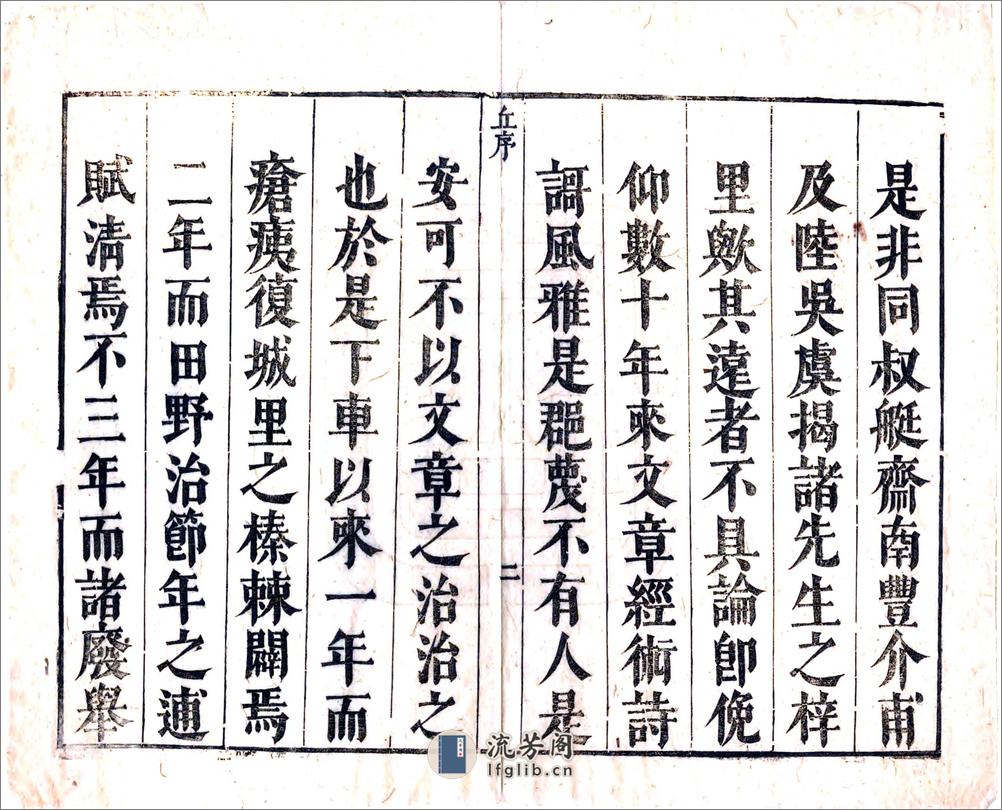 是非同叔艇齋南豐介甫
及陸吳虞揭諸先生之梓
里歟其遠者不具論卽俛
仰數十年來文章經術詩
謌風雅是郡蔑不有人是
丘序
二
安可不以文章之治治之
也於是下車以來一年而
瘡痍復城里之榛棘闢焉
二年而田野治節年之逋
賦淸焉不三年而諸廢舉
流芳阁
lfglib.cn